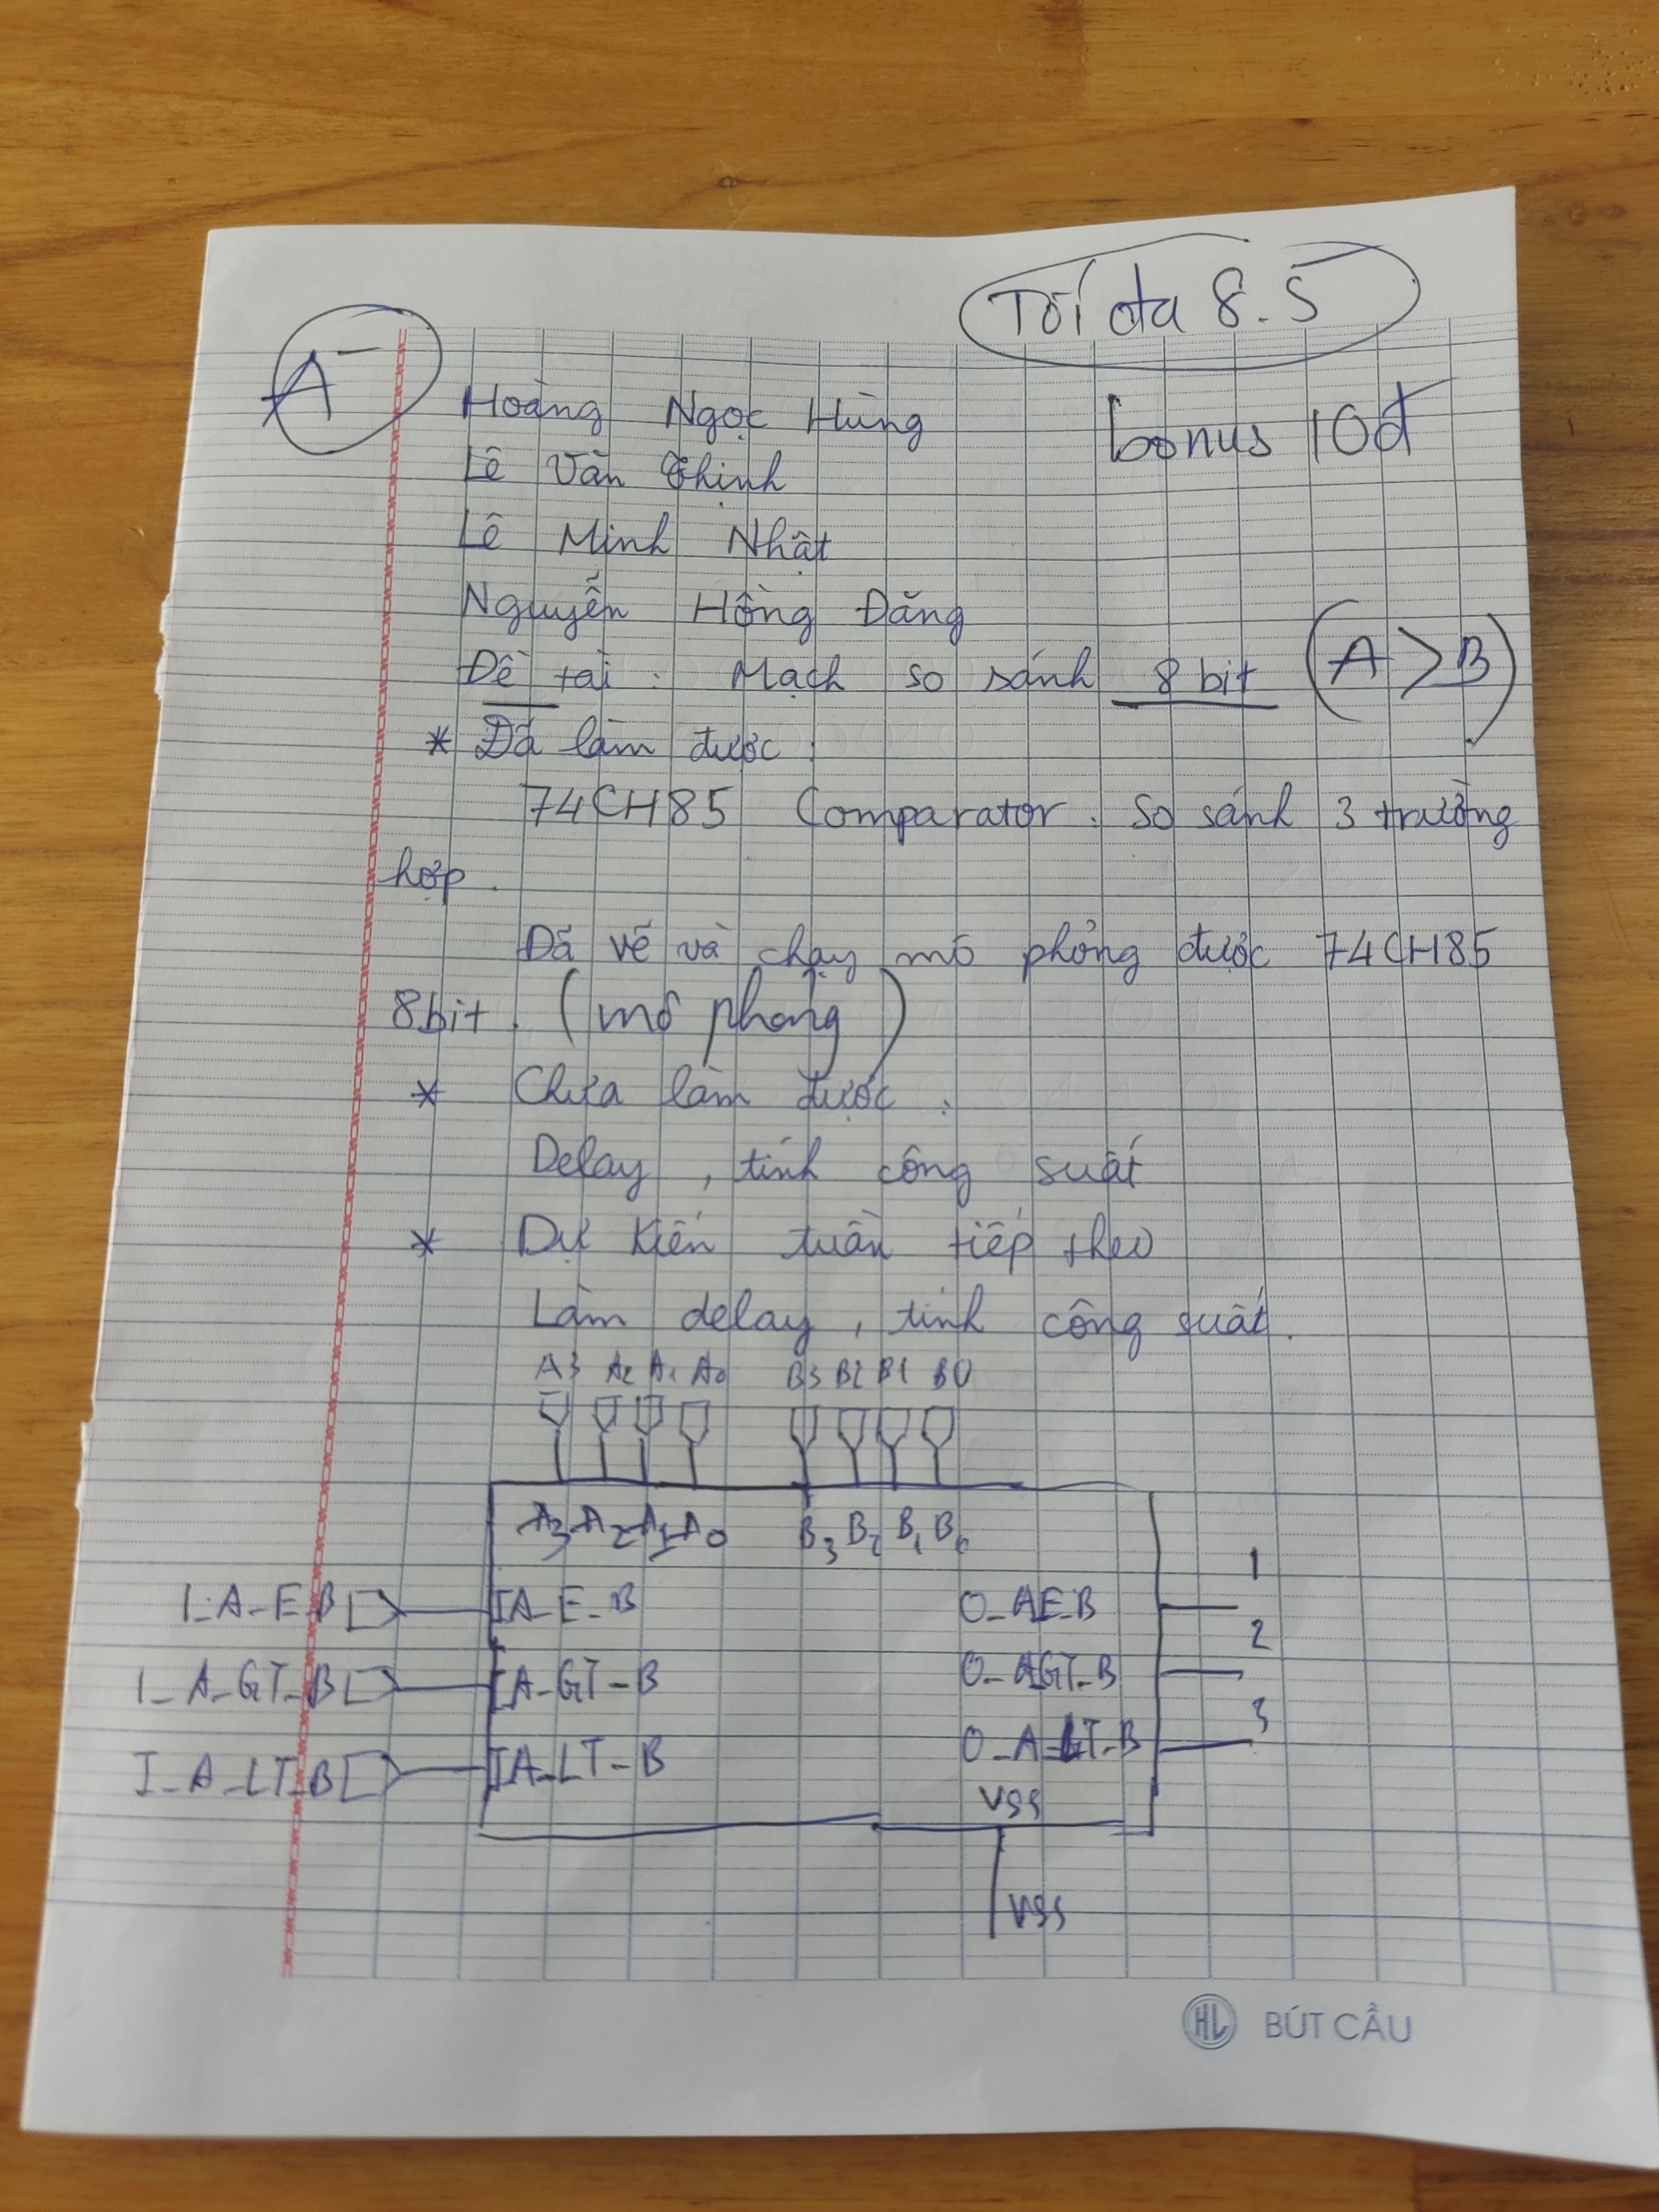 Tối đa 8.5
A-
Hoàng Ngọc Hùng
bonus 10đ
Lê Văn Thịnh
Lê Minh Nhật
Nguyễn Hồng Đăng
Đề tài : Mạch so sánh 8 bit (A > B)
* Đã làm được :
74CH85 Comparator : So sánh 3 trường
hợp .
Đã vẽ và chạy mô phỏng được 74CH85
8bit . (mô phỏng)
* Chưa làm được :
Delay , tính công suất
* Dự kiến tuần tiếp theo
Làm delay , tính công suất .
A3 A2 A1 A0 B3 B2 B1 B0
A3 A2 A1 A0 B3 B2 B1 B0
I_A_E_B IA_E_B O_AE_B 1
I_A_GT_B IA_GT_B O_AGT_B 2
I_A_LT_B IA_LT_B O_A_LT_B 3
VSS
VSS
HL BÚT CẦU